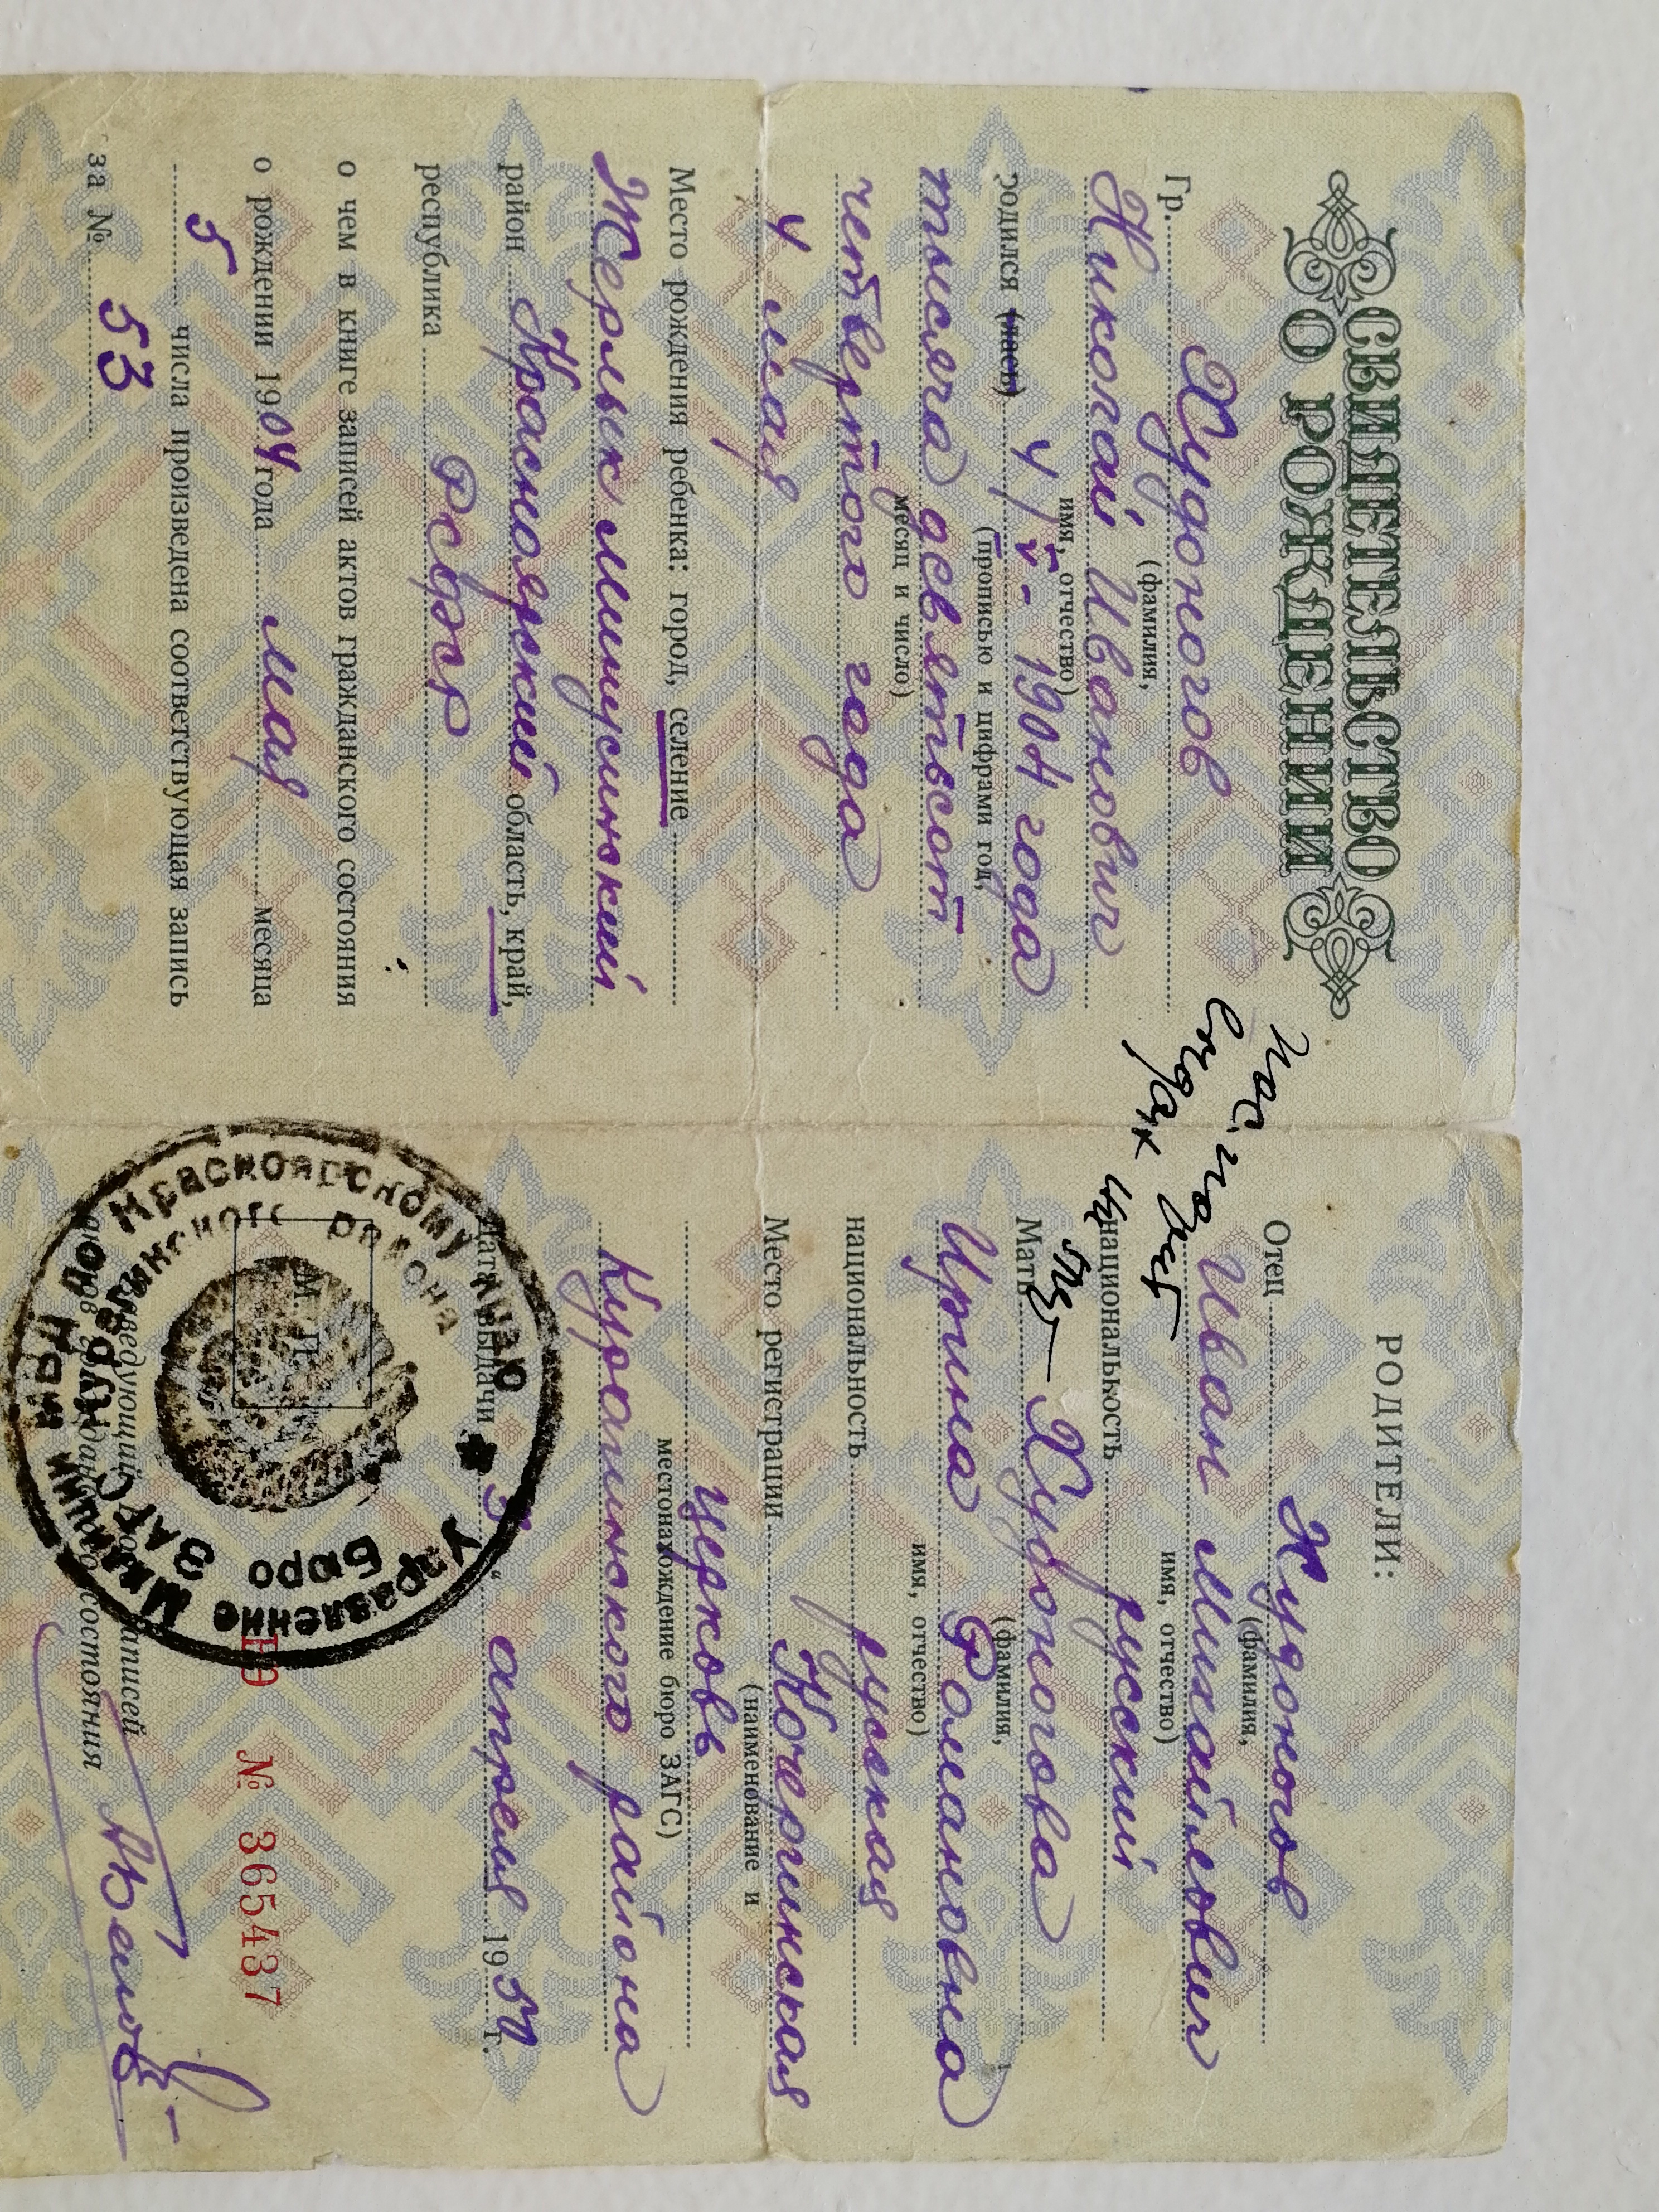 СВИДЕТЕЛЬСТВО
О РОЖДЕНИИ
Гр. Худоногов
(фамилия,
Николай Иванович
имя, отчество)
родился (лась) 4/V- 1904 года
(прописью и цифрами год,
тысяча девятьсот
месяц и число)
четвертого года
4 мая
Место рождения ребенка: город, селение
Жерлык Минусинский
район Красноярский область, край,
республика РСФСР
о чем в книге записей актов гражданского состояния
о рождении 1904 года мая месяца
5 числа произведена соответствующая запись
за № 53
РОДИТЕЛИ:
Отец Худоногов
(фамилия,
Иван Михайлович
имя, отчество)
национальность русский
Мать Худоногова
(фамилия,
Ирина Романовна
имя, отчество)
национальность русская
Место регистрации Кочергинская
(наименование и
церковь
местонахождение бюро ЗАГС)
Курагинского района
Дата выдачи 5 " апреля 1950 г.
М. П.
№ 365437
Заведующий бюро записей
актов гражданского состояния
Управление Милиции МВД по Красноярскому краю
Бюро ЗАГС Курагинского района